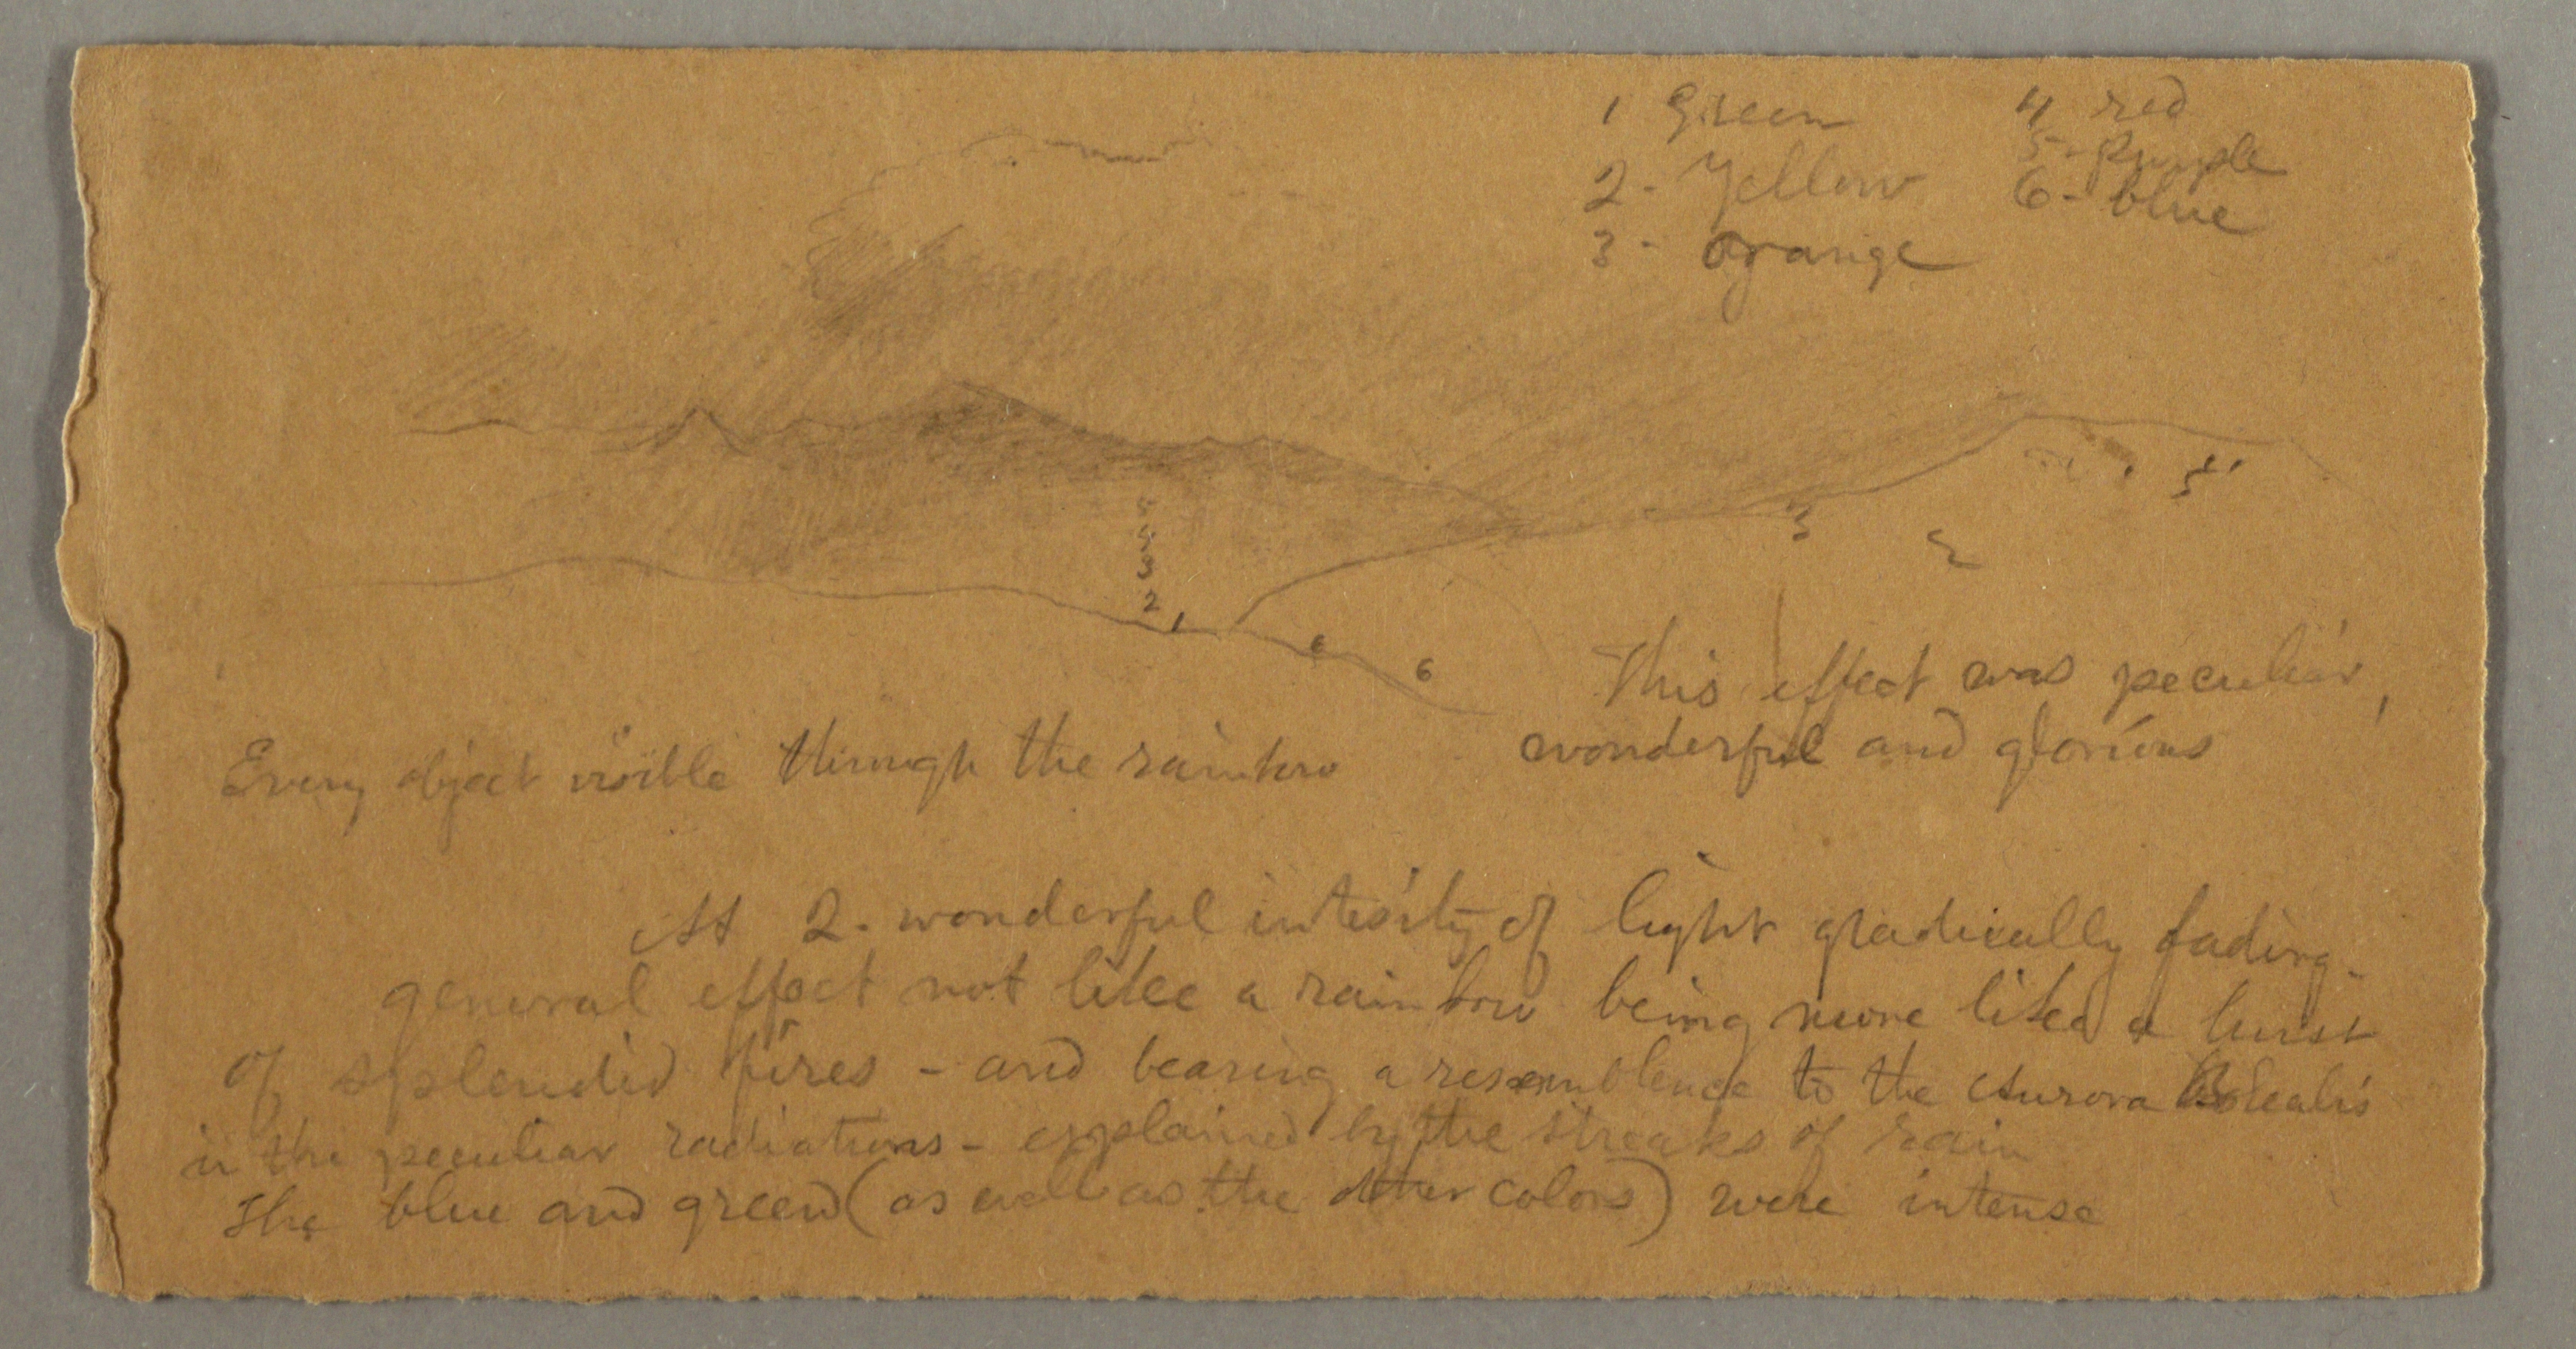 1 Green
2 - Yellow
3 - Orange
4 red
5 - Purple
6 - blue
5
3
2
5
3
2
1
6
6
This effect was peculiar,
wonderful and glorious
Every object visible through the rainbow
At 2. wonderful intesity of light gradually fading -
general effect not like a rainbow being more like a burst
of splendid fires - and bearing a resemblence to the Aurora Borealis
in the peculiar radiations - explained by the streaks of rain
The blue and green (as well as the other colors) were intense